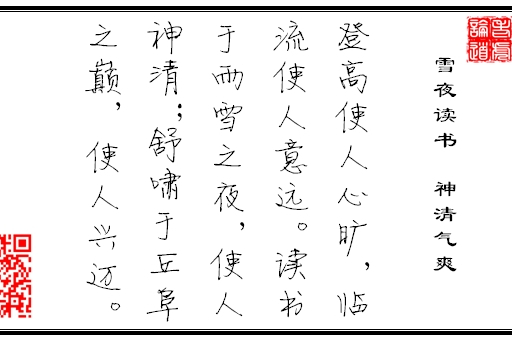 雪夜读书 神清气爽
登高使人心旷，临
流使人意远。读书
于雨雪之夜，使人
神清；舒啸于丘阜
之巅，使人兴迈。